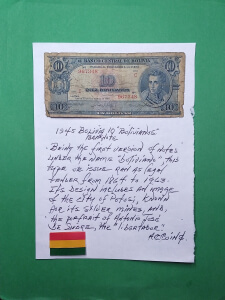 EL BANCO CENTRAL DE BOLIVIA
10
DIEZ BOLIVIANOS
10 10
1945 BOLIVIA 10 "BOLIVIANOS"
BANKNOTE
BEING THE FIRST VERSION OF NOTES
UNDER THE NAME "BOLIVIANO", THIS
TYPE OR ISSUE RAN AS LEGAL
TENDER FROM 1864 TO 1963.
ITS DESIGN INCLUDES AN IMAGE
OF THE CITY OF POTOSI, KNOWN
FOR ITS SILVER MINES, AND,
THE PORTRAIT OF ANTONIO JOSÉ
DE SUCRE, THE "LIBERTADOR"